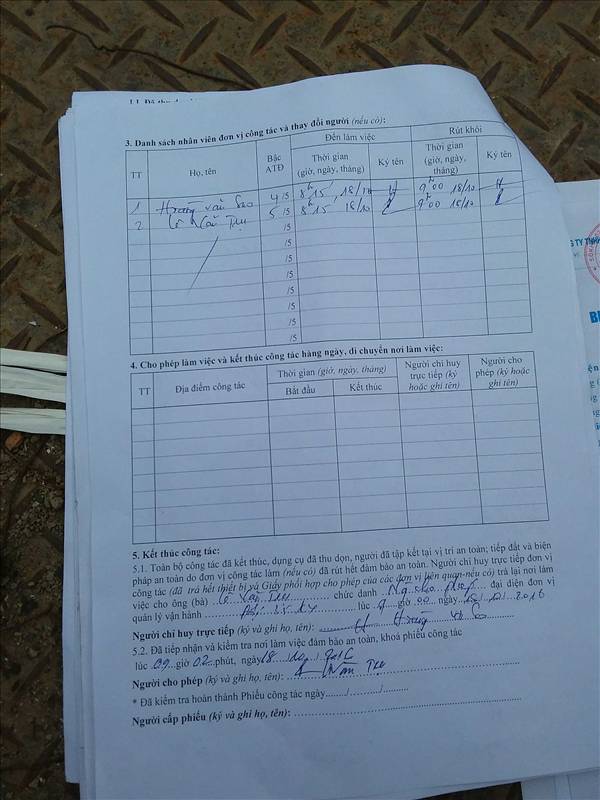 3. Danh sách nhân viên đơn vị công tác và thay đổi người (nếu có):
TT Họ, tên Bậc ATĐ Đến làm việc Rút khỏi
Thời gian (giờ, ngày, tháng) Ký tên Thời gian (giờ, ngày, tháng) Ký tên
1 Hoàng Văn Sao 4/5 8h15, 18/10 9h00 18/10
2 Lê Văn Thụ 5/5 8h15 18/10 9h00 18/10
/5
/5
/5
/5
/5
/5
/5
/5
4. Cho phép làm việc và kết thúc công tác hàng ngày, di chuyển nơi làm việc:
TT Địa điểm công tác Thời gian (giờ, ngày, tháng) Người chỉ huy trực tiếp (ký hoặc ghi tên) Người cho phép (ký hoặc ghi tên)
Bắt đầu Kết thúc
5. Kết thúc công tác:
5.1. Toàn bộ công tác đã kết thúc, dụng cụ đã thu dọn, người đã tập kết tại vị trí an toàn; tiếp đất và biện
pháp an toàn do đơn vị công tác làm (nếu có) đã rút hết đảm bảo an toàn. Người chỉ huy trực tiếp đơn vị
công tác (đã trả hết thiết bị và Giấy phối hợp cho phép của các đơn vị liên quan-nếu có) trả lại nơi làm
việc cho ông (bà) Lê Văn Thụ chức danh Ng cho phép đại diện đơn vị
quản lý vận hành lúc 9 giờ 00 ngày 2016
Người chỉ huy trực tiếp (ký và ghi họ, tên):
5.2. Đã tiếp nhận và kiểm tra nơi làm việc đảm bảo an toàn, khoá phiếu công tác
lúc 09 giờ 02 phút, ngày 18 / 10 / 2016
Người cho phép (ký và ghi họ, tên): Văn Thụ
* Đã kiểm tra hoàn thành Phiếu công tác ngày....../....../......
Người cấp phiếu (ký và ghi họ, tên):